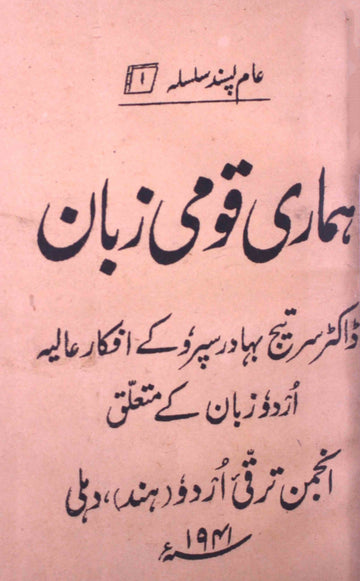 عام پسند سلسلہ ۱
ہماری قومی زبان
ڈاکٹر سر تیج بہادر سپرو کے افکار عالیہ
اُردو زبان کے متعلّق
انجمن ترقّیٔ اُردو (ہند)، دہلی
۱۹۴۱ء